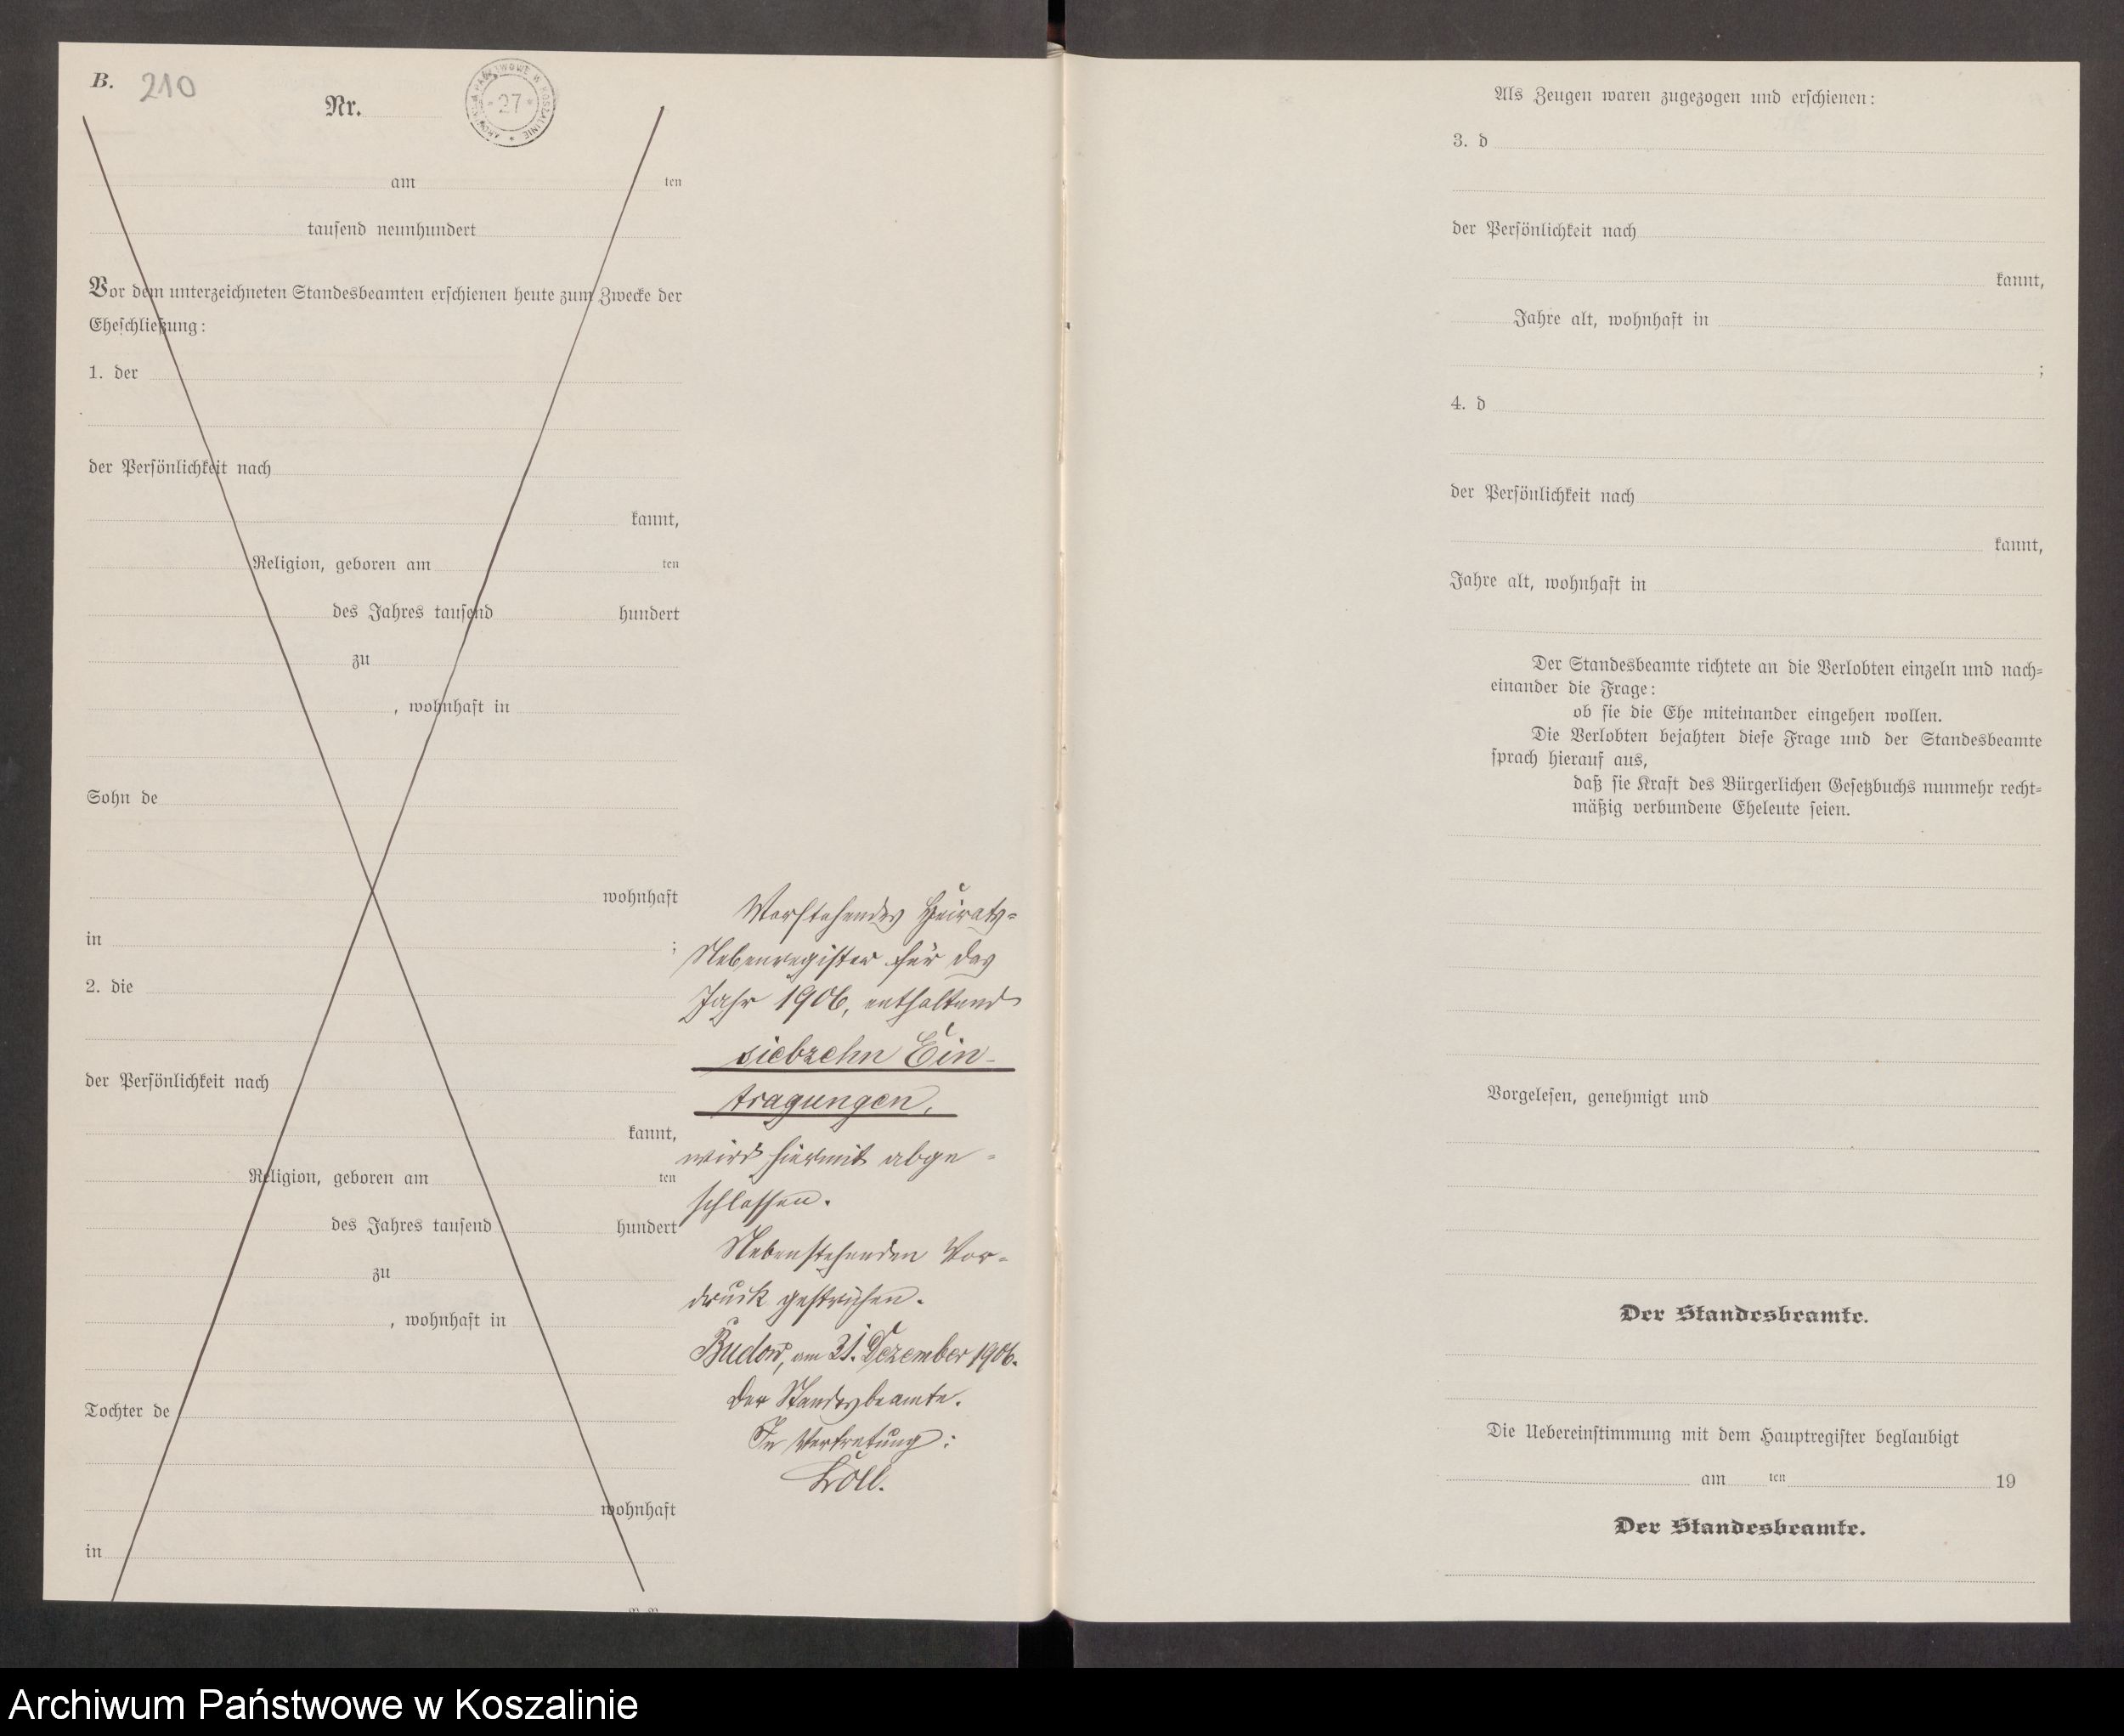 B. 210
Nr.
ARCHIWUM PAŃSTWOWE W KOSZALINIE
* 27 *
am ten
tausend neunhundert
Vor dem unterzeichneten Standesbeamten erschienen heute zum Zwecke der
Eheschließung:
1. der
der Persönlichkeit nach
kannt,
Religion, geboren am ten
des Jahres tausend hundert
zu
, wohnhaft in
Sohn de
wohnhaft
in ;
2. die
der Persönlichkeit nach
kannt,
Religion, geboren am ten
des Jahres tausend hundert
zu
, wohnhaft in
Tochter de
wohnhaft
in
Vorstehendes Heirats-
Nebenregister für das
Jahr 1906, enthaltend
siebzehn Ein-
tragungen,
wird hiermit abge-
schlossen.
Nebenstehenden Vor-
druck gestrichen.
Budow, am 31. Dezember 1906.
Der Standesbeamte.
In Vertretung:
Als Zeugen waren zugezogen und erschienen:
3. d
der Persönlichkeit nach
kannt,
Jahre alt, wohnhaft in
;
4. d
der Persönlichkeit nach
kannt,
Jahre alt, wohnhaft in
Der Standesbeamte richtete an die Verlobten einzeln und nach-
einander die Frage:
ob sie die Ehe miteinander eingehen wollen.
Die Verlobten bejahten diese Frage und der Standesbeamte
sprach hierauf aus,
daß sie Kraft des Bürgerlichen Gesetzbuchs nunmehr recht-
mäßig verbundene Eheleute seien.
Vorgelesen, genehmigt und
Der Standesbeamte.
Die Uebereinstimmung mit dem Hauptregister beglaubigt
am ten 19
Der Standesbeamte.
Archiwum Państwowe w Koszalinie